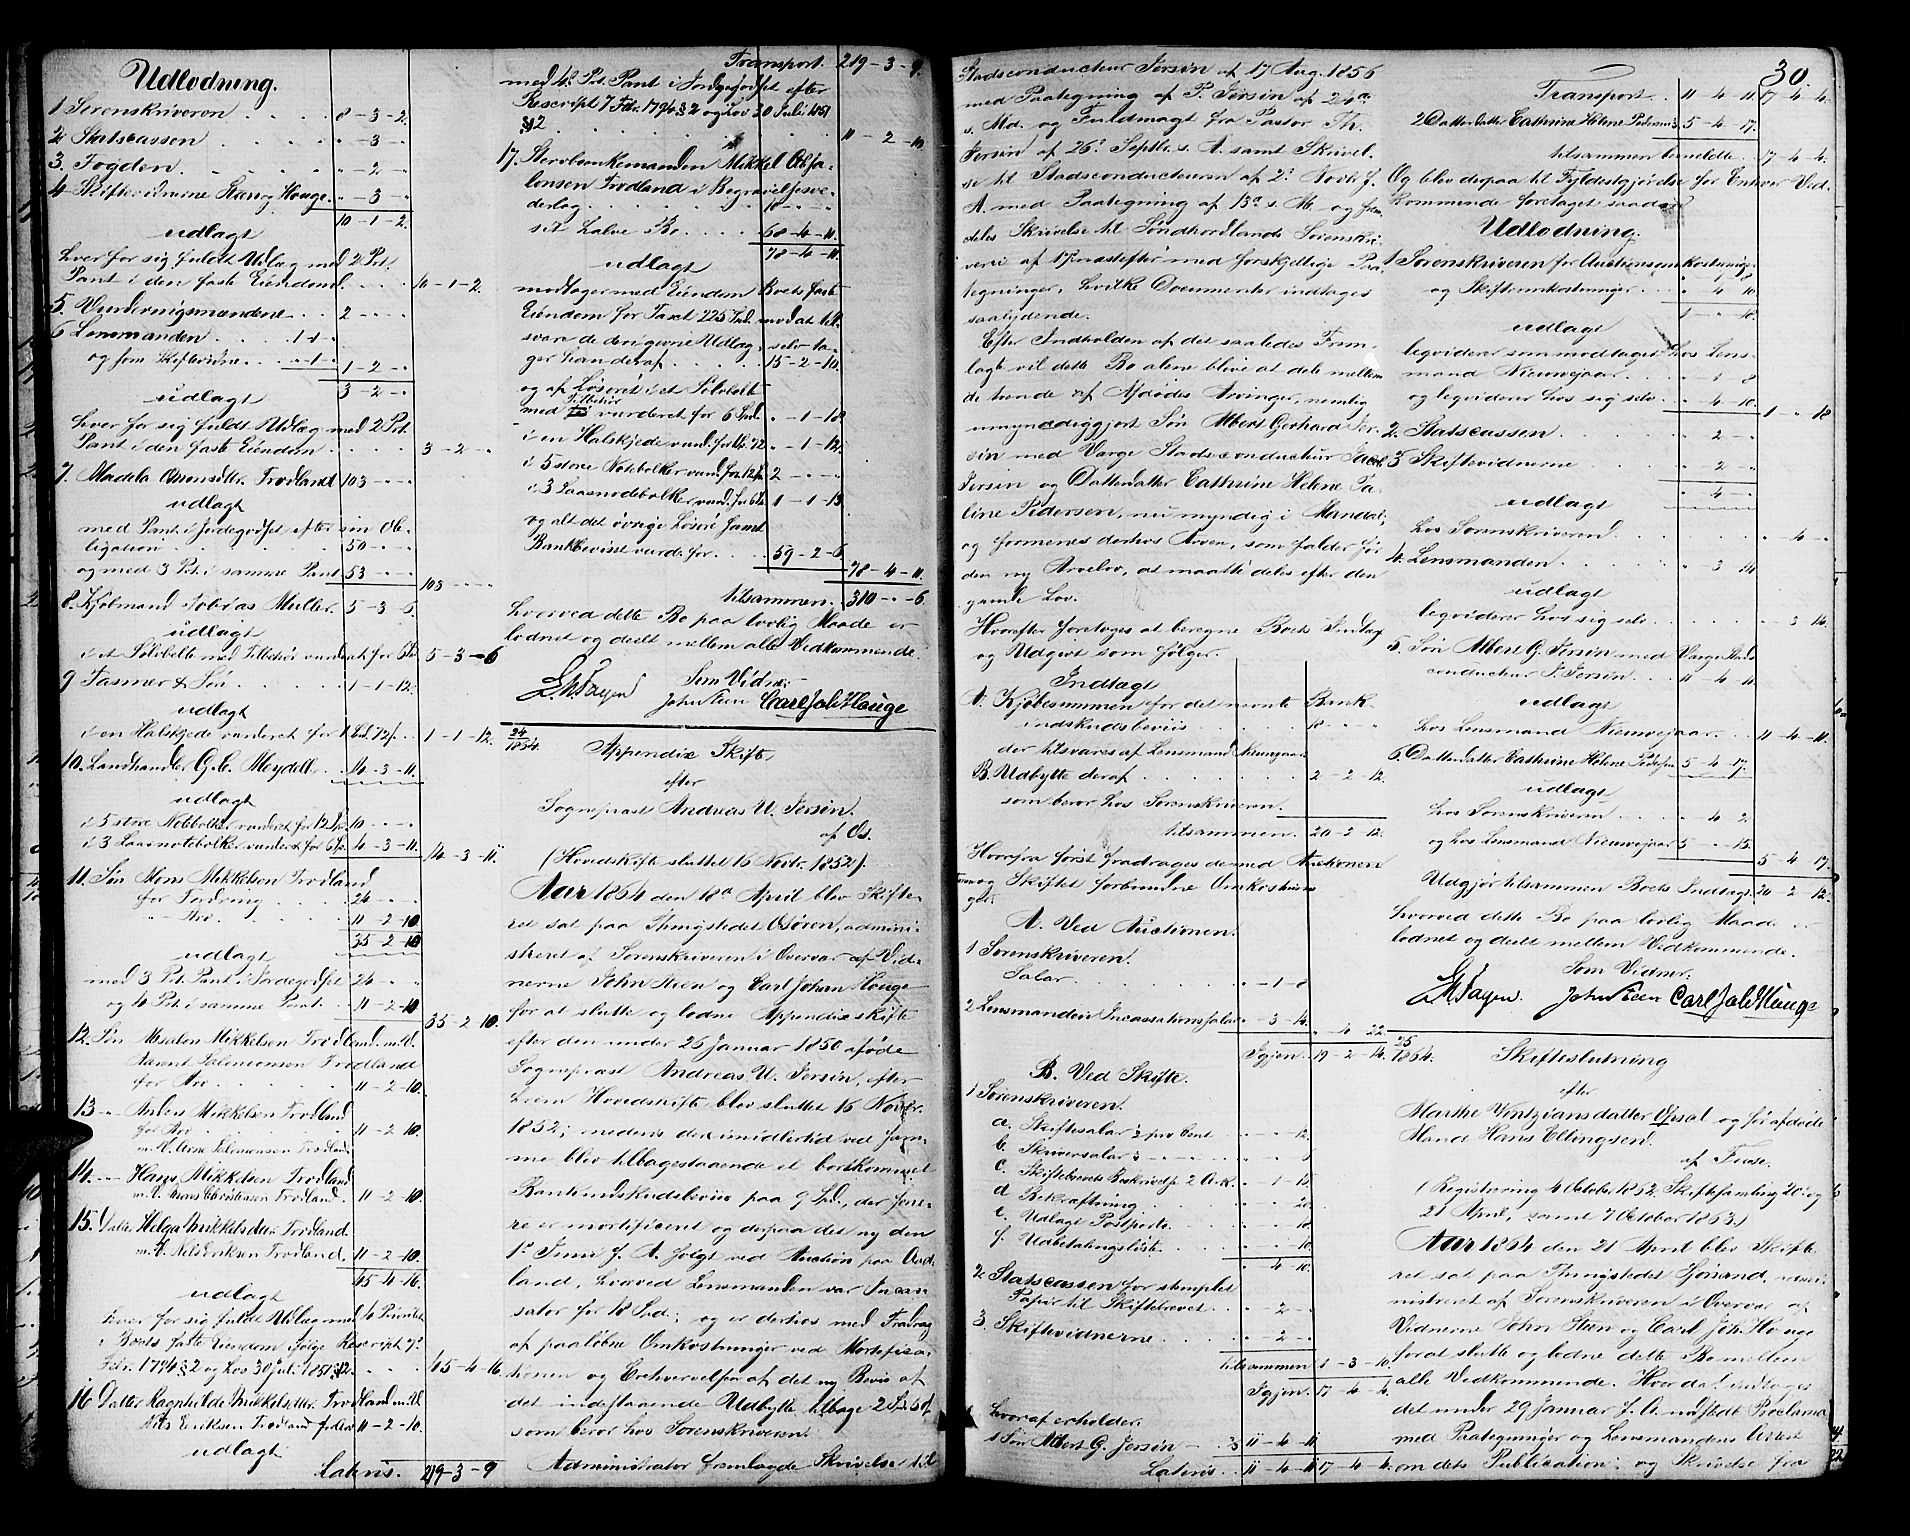 Udlodning.
1 Sorenskriveren . . . . 8 - 3 - 2.
2 Statscassen . . . . " - 3 - "
3. Fogden . . . . " - 2 - "
4 Skiftevidnerne Steen og Houge . " - 3 - "
10 - 1 - 2.
udlagt
hver for sig fuldt Udlæg med 2 Prt.
Pant i den faste Eiendom . 10 - 1 - 2.
5. Vurderingsmændene . . . 2 - " - "
6 Lensmanden . . 1 - 1 - "
og som Skiftevidne . . " - 1 - "
1 - 2 - "
3 - 2 - "
udlagt
hver for sig fuldt Udlæg med 2 Prt.
Pant i den faste Eiendom . . . 3 - 2 - "
7. Madela Trodland 103 - " - "
udlagt
med Pant i Jordegodset efter sin Ob-
ligation . . . . 50 - " - "
og med 3 Prt. i samme Pant 53 - " - "
103 - " - "
8. Kjøbmand Tobias Müller . 5 - 3 - 6.
udlagt
i et Sølvbelte med Tilbehør vurderet for 6 5 - 3 - 6
9 Fasmer & Søn . . . . 1 - 1 - 12.
udlagt
i en Halskjede vurderet for 1 - 1 - 12.
10. Landhandler G. C. Meydell . . 14 - 3 - 11.
udlagt
i 5 store Notebolker vurderet for 12 10 - " - "
i 3 Laasnotebolker vurderet for 6 4 - 3 - 11.
14 - 3 - 11.
11. Søn Mons Mikkelsen Trodland
for Fordring . . . . 24 - " - "
" - Arv . . . . 11 - 2 - 10
35 - 2 - 10
udlagt
med 3 Prt. Pant i Jordegodset 24 - " - "
og 4 Prt. i samme Pant . 11 - 2 - 10
35 - 2 - 10.
12. Søn Mikkelsen Trodland m. V.
Salomonsen Trodland
for Arv . . . . 11 - 2 - 10.
13 - " - Anders Mikkelsen Trodland
for Arv . . . . 11 - 2 - 10.
m. V. Arne Salomonsen Trodland
14. - " - Hans Mikkelsen Trodland
m. V. Christensen Trodland . 11 - 2 - 10.
15. Datter Helga Mikkelsdtr. Trodland
m. V. Nels Eriksen Trodland . 11 - 2 - 10.
45 - 4 - 16.
udlagt
hver for sig fuldt Udlæg med 4 Prioritet
i Boets faste Eiendom ifølge Rescript 7de
Febr. 1794 § 2 og Lov 30 Juli 1851 § 12. . . . 45 - 4 - 16.
16 Datter Ragnhilde Mikkelsdtr. Trodland m. V.
Nels Eriksen Trodland for Arv 11 - 2 - 10.
udlagt
Lateris. 219 - 3 - 9
Transport. 219 - 3 - 9.
med 4de Prt. Pant i Jordegodset efter
Rescript 7 Febr. 1794 § 2 og Lov 30 Juli 1851
§ 12 . . . . 11 - 2 - 10
17. Stervboenkemanden Mikkel Absa-
lonsen Trodland i Begravelsesve-
derlag . . . . 10 - " - "
sit halve Bo . . . . 68 - 4 - 11.
78 - 4 - 11.
udlagt
modtager med Eiendom Boets faste
Eiendom for Taxt 225 Spd. mod at til-
svare de deri givne Udlæg, selv ta-
ger han deraf . . . . 15 - 2 - 10.
og af Løsøret i et Sølvbelte
Tilbehør
med vurderet for 6 Spd. " - 1 - 18.
i en Halskjede vurd. for " - 1 - 12.
i 5 store Notebolker vurd. for 12 2 - " - "
i 3 Laasnotebolker vurd. for 6 1 - 1 - 13
og alt det øvrige Løsøre samt
Bankbeviset vurd. for . . . 59 - 2 - 6
78 - 4 - 11.
tilsammen. 310 - " - 6.
hvorved dette Bo paa lovlig Maade er
lodnet og deelt mellem alle Vedkommende.
Som Vidner:
John Steen Carl Joh. Houge
24
1864.
Appendix Skifte,
efter
Sogneprest Andreas U. Jersin.
af Os.
(Hovedskifte sluttet 16 Novbr. 1852).
Aar 1864 den 18de April blev Skifte-
ret sat paa Thingstedet Osøren, admini-
streret af Sorenskriveren i Overvær af Vid-
nerne John Steen og Carl Johan Houge
for at slutte og lodne Appendix skifte
efter den under 26 Januar 1850 afdøde
Sogneprest Andreas U. Jersin, efter
hvem Hovedskifte blev sluttet 16 Novbr.
1852; medens der imidlertid ved sam-
me blev tilbagestaaende et bortkommet
Bankindskudsbeviis paa 9 Spd., der sene-
re er mortificeret og derpaa det ny den
1ste Juni f. A. solgt ved Auction paa
land, hvorved Lensmanden var Incas-
sator for 18 Spd.; og er derhos med Fradrag
af paaløbne Omkostninger ved Mortifica-
tionen og Erhvervelse af det ny Bevis af
det indestaaende Udbytte tilbage 2
som beror hos Sorenskriveren.
Administrator fremlagde Skrivelse til
30.
Stadsconducteur Jersin af 17 Aug. 1856
med Paategning af P. Jersin af 24de
s. Md. og Fuldmagt fra Pastor Th.
Jersin af 26de Septbr. s. A. samt Skrivel-
se til Stadsconducteuren af 2de Novbr. f.
A. med Paategning af 13de s. M. og frem-
deles Skrivelse til Søndhordlands Sorenskri-
veri af 17 næstefter med forskjellige Paa-
tegninger, hvilke Documenter indtages
saalydende.
Efter Indholden af det saaledes Frem-
lagte vil dette Bo alene blive at dele mellem
de tvende af Afdødes Arvinger, nemlig
umyndiggjort Søn Albert Gerhard Jer-
sin med Værge Stadsconducteur
Jersin og Datterdatter Cathrine Helene Pa-
line Pedersen, nu myndig i Mandal;
og formenes derhos Arven, som falder før
den ny Arvelov, at maatte deles efter den
gamle Lov.
Hvorefter foretoges at beregne Boets Indtægt
og Udgivt som følger.
Indtægt
A. Kjøbesummen for det nævnte Bank-
indskudsbeviis . . . . 18 - " - "
der tilsvares af Lensmand Nieuwejaar
B. Udbytte deraf . . . . 2 - 2 - 12.
som beror hos Sorenskriveren.
tilsammen. 20 - 2 - 12.
Hvorfra først fradrages de med Auctionen
og Skiftet forbundne Omkostninger
A. Ved Auctionen.
1 Sorenskriveren.
Salær . . . . " - 1 - 8
2 Lensmanden Incassationssalær " - 3 - 14.
" - 4 - 22.
Igjen. 19 - 2 - 14.
B. Ved Skifte.
1 Sorenskriveren.
a. Skiftesalær ½ pro Cent . . " - " - 12.
b. Skriversalær
c. Skiftebrevets Beskrivelse 2 Ark. " - 1 - 12.
d. Bekræftning . . . " - " - 20.
e. Udlagt Postporto . . . " - " - 18.
f. Udbetalingsliste . . . " - " - 10.
" - 4 - 10.
2 Statscassen for stemplet
Papir til Skiftebrevet . . . " - 2 - "
3. Skiftevidnerne . . . . " - 2 - "
tilsammen 1 - 3 - 10.
Igjen. 17 - 4 - 4.
hvoraf erholder:
1 Søn Albert G. Jersin - . ⅔ 11 - 4 - 11
Lateris . 11 - 4 - 11. 17 - 4 - 4
Transport . . 11 - 4 - 11. 17 - 4 - 4.
2 Datterdatter Cathrine Helene Pedersen ⅓ 5 - 4 - 17.
tilsammen bemeldte . . 17 - 4 - 4.
Og blev derpaa til Fyldestgjørelse for Enhver Ved-
kommende foretaget saadan
Udlodning.
1 Sorenskriveren for Auctionsomkostninger
og Skifteomkostninger . . . " - 4 - 10.
1 - " - 10.
udlagt
liqviderer som modtaget hos Lens-
mand Nieuwejaar . . . " - 1 - 8
og liqviderer hos sig selv . . " - 4 - 10.
1 - " - 18
2. Statscassen . . . . " - 2 - "
3 Skiftevidnerne . . . . " - 2 - "
" - 4 - "
udlagt
hos Sorenskriveren . . . . " - 4 - "
4. Lensmanden . . . . " - 3 - 14
udlagt
liqviderer hos sig selv . . . . " - 3 - 14.
5. Søn Albert G. Jersin med Værge Stads-
conducteur J. Jersin . . . 11 - 4 - 11.
udlagt
hos Lensmand Nieuwejaar . . . 11 - 4 - 11.
6 Datterdatter Cathrine Helene Pedersen 5 - 4 - 17.
udlagt
hos Sorenskriveren . . . " - 4 - 2.
og hos Lensmand Nieuwejaar 5 - " - 15.
5 - 4 - 17.
Udgjør tilsammen Boets Indtægt 20 - 2 - 12.
hvorved dette Bo paa lovlig Maade er
lodnet og deelt mellem Vedkommende.
Som Vidner:
John Steen Carl Joh. Houge
25
1864.
Skifteslutning
efter
Marthe Vintziansdatter Opsal og før afdøde
Mand Hans Ellingsen.
af Fuse.
(Registrering 4 October 1862, Skiftesamling 20de og
21 April, samt 7 October 1863.)
Aar 1864 den 21 April blev Skifte-
ret sat paa Thingstedet Sjøsand, admi-
nistreret af Sorenskriveren i Overvær af
Vidnerne John Steen og Carl Joh. Houge
for at slutte og lodne dette Bo mellem
alle Vedkommende. Hvor da indtages
det under 29 Januar f. A. udstedt Proclama
med Paategninger og Lensmandens Attest
om dets Publication; og Skrivelse fra